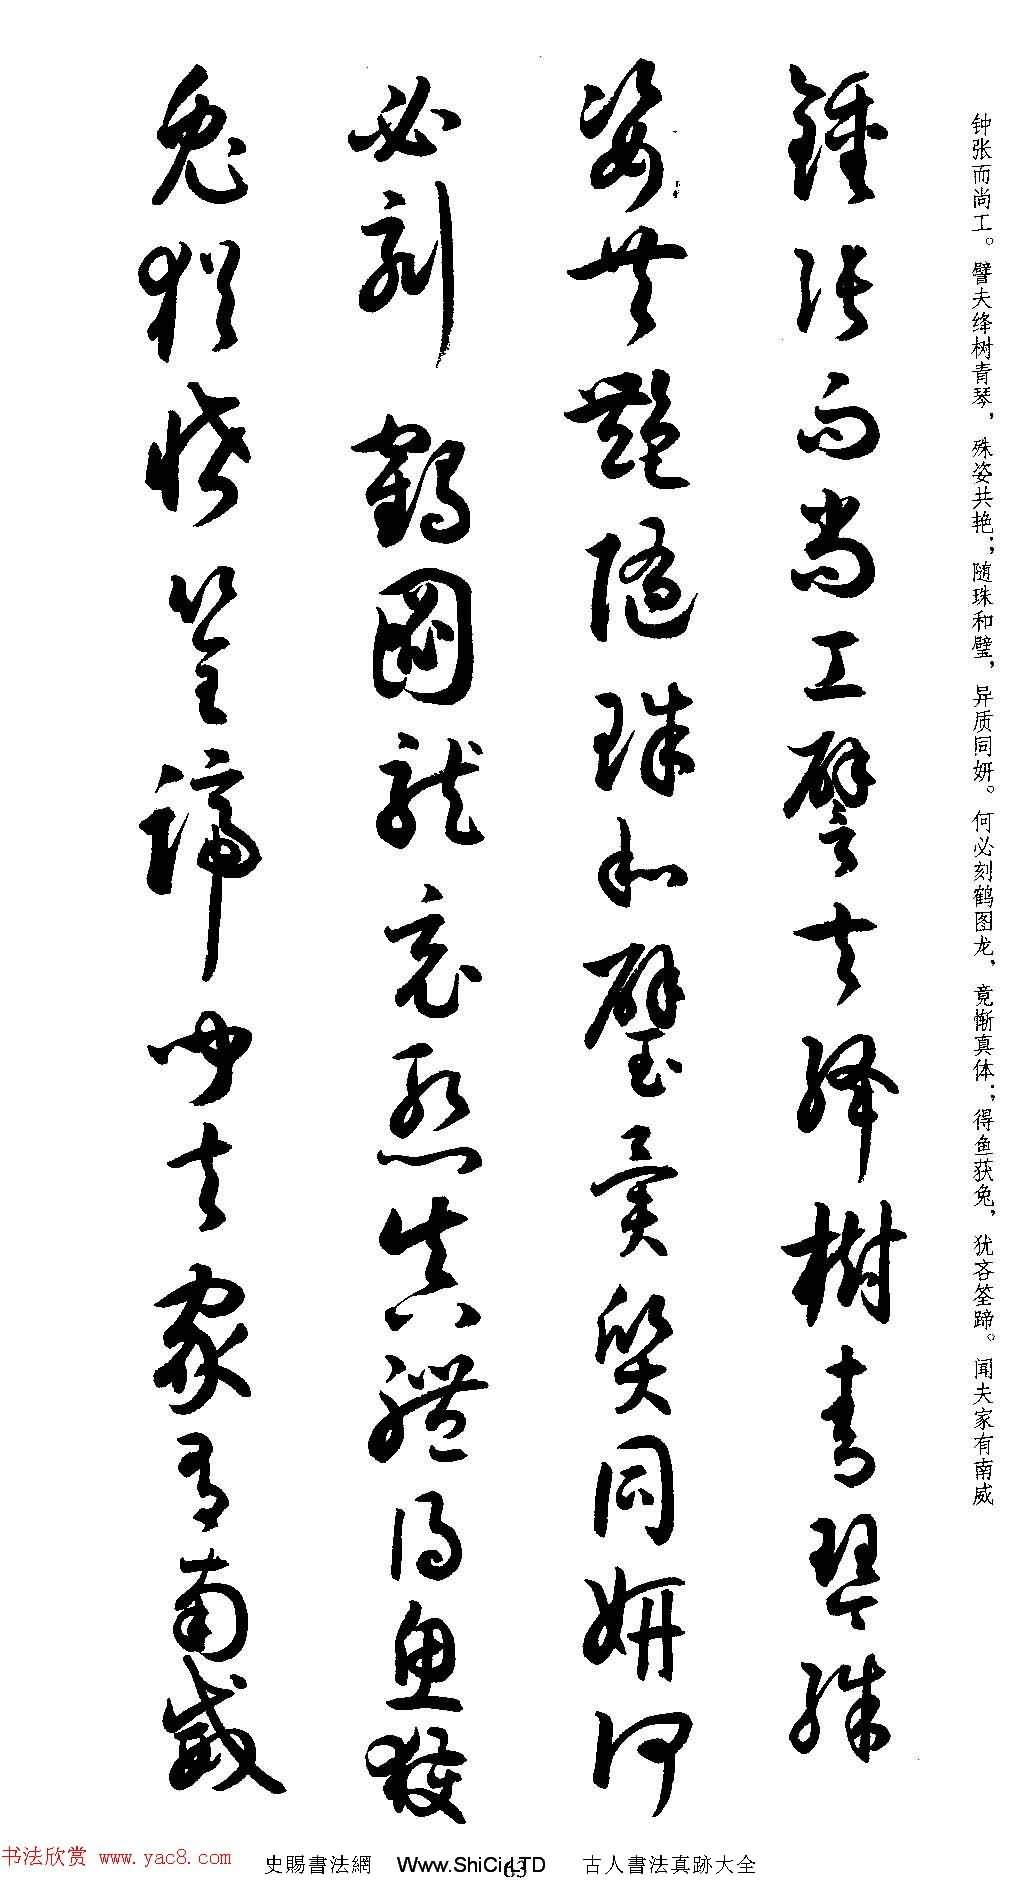 钟张而尚工。譬夫绛树青琴，殊姿共艳；随珠和璧，异质同妍。何必刻鹤图龙，竟惭真体；得鱼获兔，犹吝筌蹄。闻夫家有南威
鍾張而尚工譬夫絳樹青琴殊
姿共艷隨珠和璧異質同妍何
必刻鶴圖龍竟慙真體得魚獲
兔猶恡筌蹄聞夫家有南威
书法欣赏 www.yac8.com
史賜書法網 Www.ShiCi.LTD 古人書法真跡大全
63